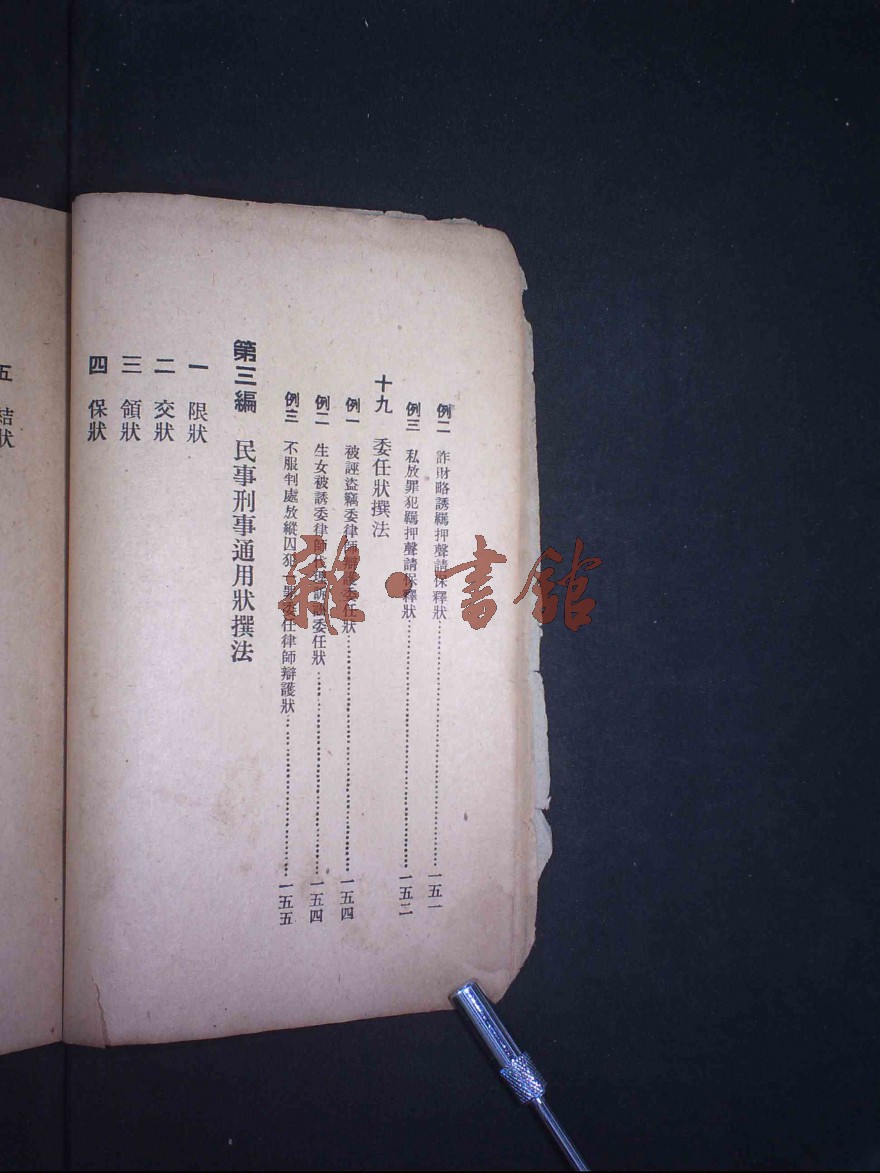 例二　詐財略誘羈押聲請保釋狀……一五一
例三　私放罪犯羈押聲請保釋狀……一五二
十九　委任狀撰法
例一　被誣盜竊委律師辯護委任狀……一五四
例二　生女被誘委律師代理訴訟委任狀……一五四
例三　不服判處放縱囚犯一罪委任律師辯護狀……一五五
第三編　民事刑事通用狀撰法
一　限狀
二　交狀
三　領狀
四　保狀
五　結狀
雜·書館